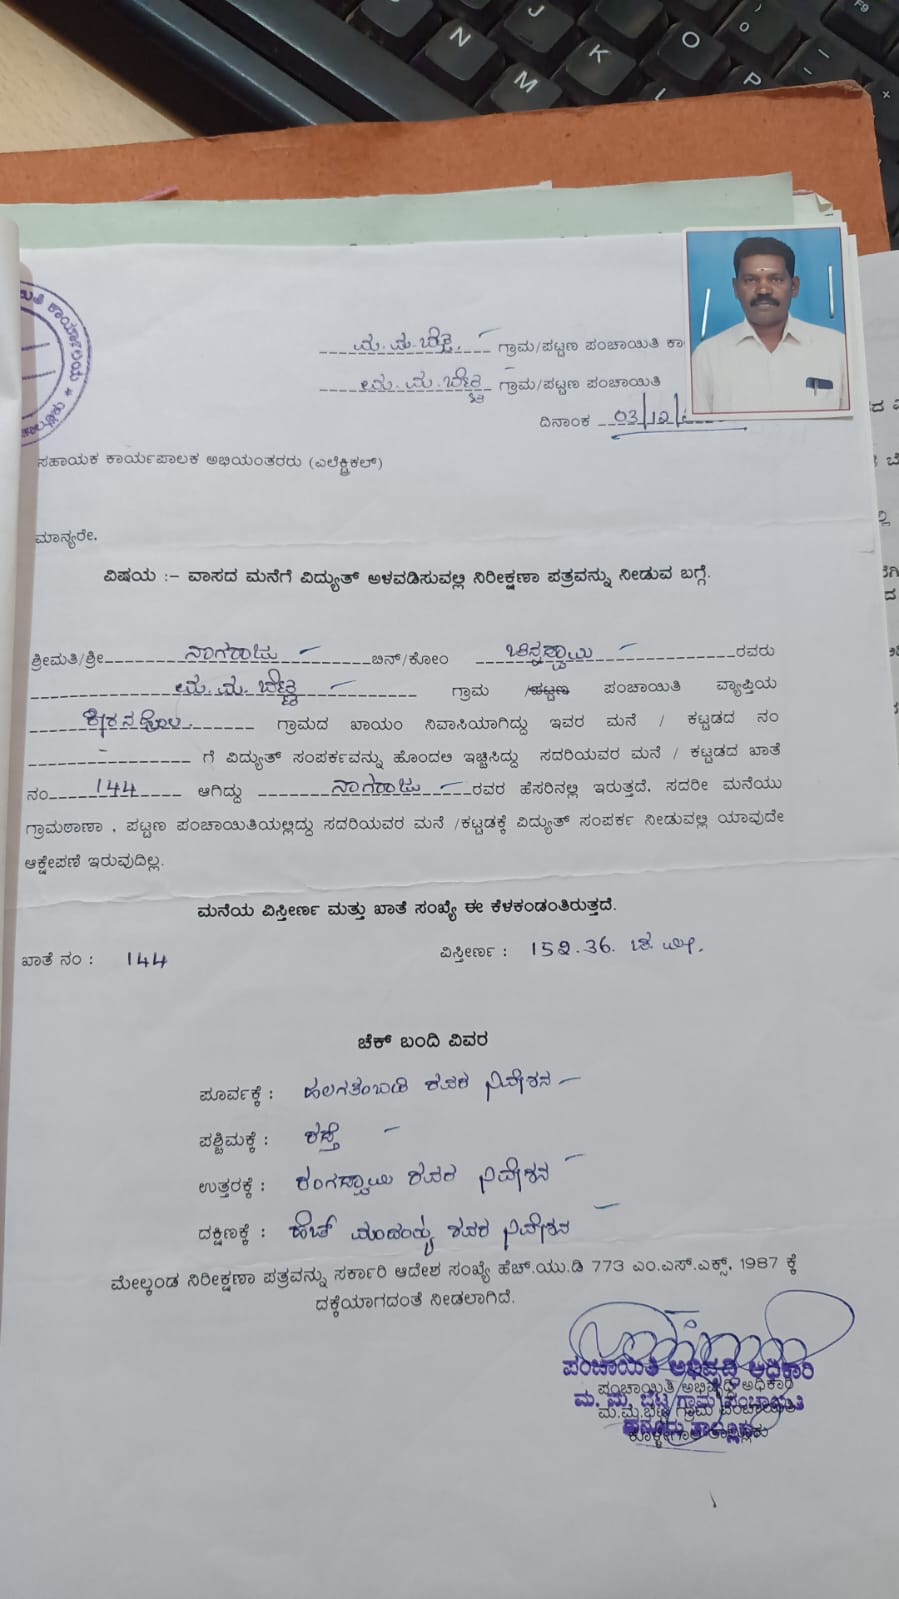 ಮ.ಮ.ಬೆಟ್ಟ ಗ್ರಾಮ/ಪಟ್ಟಣ ಪಂಚಾಯಿತಿ ಕಾ
ಮ.ಮ.ಬೆಟ್ಟ ಗ್ರಾಮ/ಪಟ್ಟಣ ಪಂಚಾಯಿತಿ
ದಿನಾಂಕ 03/12/
ಸಹಾಯಕ ಕಾರ್ಯಪಾಲಕ ಅಭಿಯಂತರರು (ಎಲೆಕ್ಟ್ರಿಕಲ್)
ಮಾನ್ಯರೇ,
ವಿಷಯ :– ವಾಸದ ಮನೆಗೆ ವಿದ್ಯುತ್ ಅಳವಡಿಸುವಲ್ಲಿ ನಿರೀಕ್ಷಣಾ ಪತ್ರವನ್ನು ನೀಡುವ ಬಗ್ಗೆ.
ಶ್ರೀಮತಿ/ಶ್ರೀ ನಾಗರಾಜು ಬಿನ್/ಕೋಂ ಚಿನ್ನಸ್ವಾಮಿ ರವರು
ಮ.ಮ.ಬೆಟ್ಟ ಗ್ರಾಮ /ಪಟ್ಟಣ ಪಂಚಾಯಿತಿ ವ್ಯಾಪ್ತಿಯ
ಗ್ರಾಮದ ಖಾಯಂ ನಿವಾಸಿಯಾಗಿದ್ದು ಇವರ ಮನೆ / ಕಟ್ಟಡದ ನಂ
ಗೆ ವಿದ್ಯುತ್ ಸಂಪರ್ಕವನ್ನು ಹೊಂದಲಿ ಇಚ್ಚಿಸಿದ್ದು ಸದರಿಯವರ ಮನೆ / ಕಟ್ಟಡದ ಖಾತೆ
ನಂ 144 ಆಗಿದ್ದು ನಾಗರಾಜು ರವರ ಹೆಸರಿನಲ್ಲಿ ಇರುತ್ತದೆ, ಸದರೀ ಮನೆಯು
ಗ್ರಾಮಠಾಣಾ , ಪಟ್ಟಣ ಪಂಚಾಯಿತಿಯಲ್ಲಿದ್ದು ಸದರಿಯವರ ಮನೆ /ಕಟ್ಟಡಕ್ಕೆ ವಿದ್ಯುತ್ ಸಂಪರ್ಕ ನೀಡುವಲ್ಲಿ ಯಾವುದೇ
ಆಕ್ಷೇಪಣೆ ಇರುವುದಿಲ್ಲ.
ಮನೆಯ ವಿಸ್ತೀರ್ಣ ಮತ್ತು ಖಾತೆ ಸಂಖ್ಯೆ ಈ ಕೆಳಕಂಡಂತಿರುತ್ತದೆ.
ಖಾತೆ ನಂ : 144 ವಿಸ್ತೀರ್ಣ : 152.36. ಚ.ಮೀ.
ಚೆಕ್ ಬಂದಿ ವಿವರ
ಪೂರ್ವಕ್ಕೆ : ಹಲಗತಂಬಡಿ ರವರ ನಿವೇಶನ
ಪಶ್ಚಿಮಕ್ಕೆ : ರಸ್ತೆ
ಉತ್ತರಕ್ಕೆ : ರಂಗಸ್ವಾಮಿ ರವರ ನಿವೇಶನ
ದಕ್ಷಿಣಕ್ಕೆ : ಹೆಚ್ ಮಾದಯ್ಯ ರವರ ನಿವೇಶನ
ಮೇಲ್ಕಂಡ ನಿರೀಕ್ಷಣಾ ಪತ್ರವನ್ನು ಸರ್ಕಾರಿ ಆದೇಶ ಸಂಖ್ಯೆ ಹೆಚ್.ಯು.ಡಿ 773 ಎಂ.ಎಸ್.ಎಕ್ಸ್, 1987 ಕ್ಕೆ
ದಕ್ಕೆಯಾಗದಂತೆ ನೀಡಲಾಗಿದೆ.
ಪಂಚಾಯಿತಿ ಅಭಿವೃದ್ಧಿ ಅಧಿಕಾರಿ
ಪಂಚಾಯಿತಿ ಅಭಿವೃದ್ಧಿ ಅಧಿಕಾರಿ
ಮ. ಮ. ಬೆಟ್ಟ ಗ್ರಾಮ ಪಂಚಾಯಿತಿ
ಮ.ಮ.ಬೆಟ್ಟ ಗ್ರಾಮ ಪಂಚಾಯಿತಿ
ಹನೂರು ತಾಲ್ಲೂಕು
ಕೊಳ್ಳೇಗಾಲ ತಾಲ್ಲೂಕು